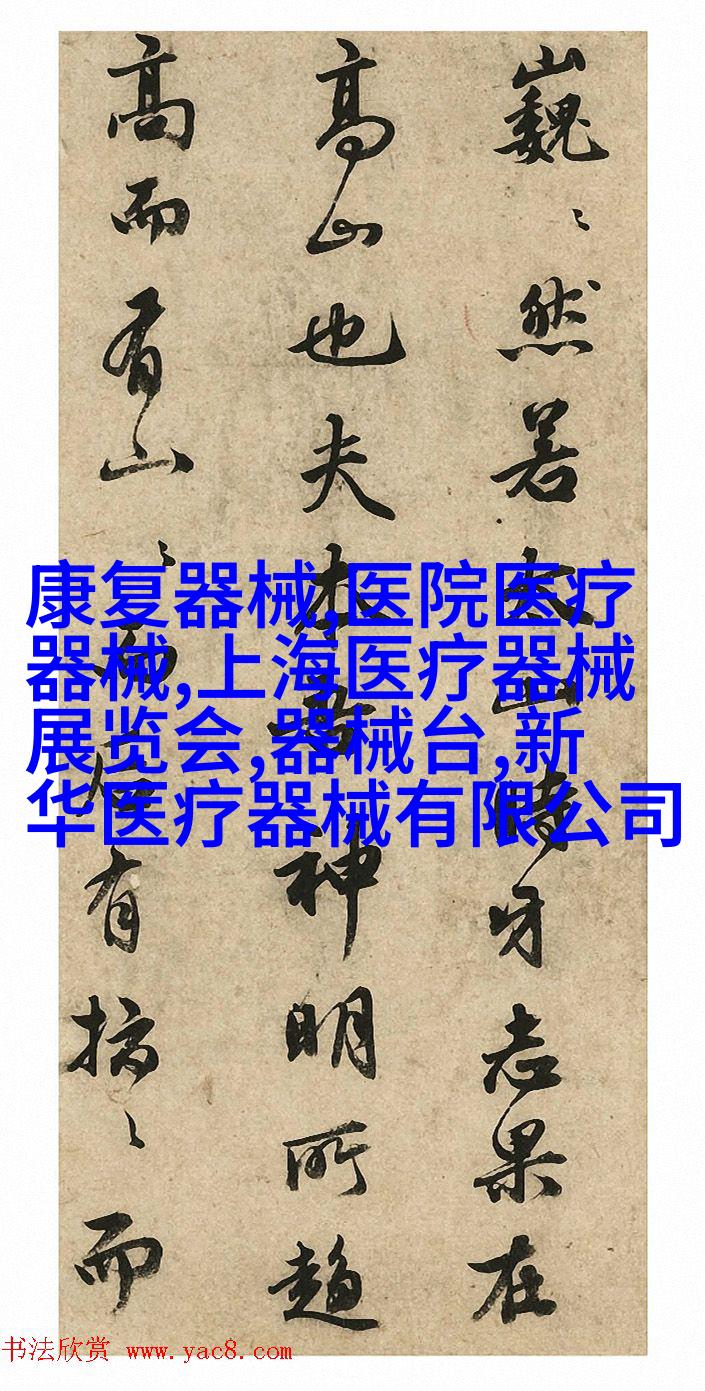 巍〻然若太山時牙志果在
高山也夫神明所趨
高而有山〻而有〻而
康复器械,医院医疗
器械,上海医疗器械
展览会,器械台,新
华医疗器械有限公司
书法欣赏 www.yac8.com